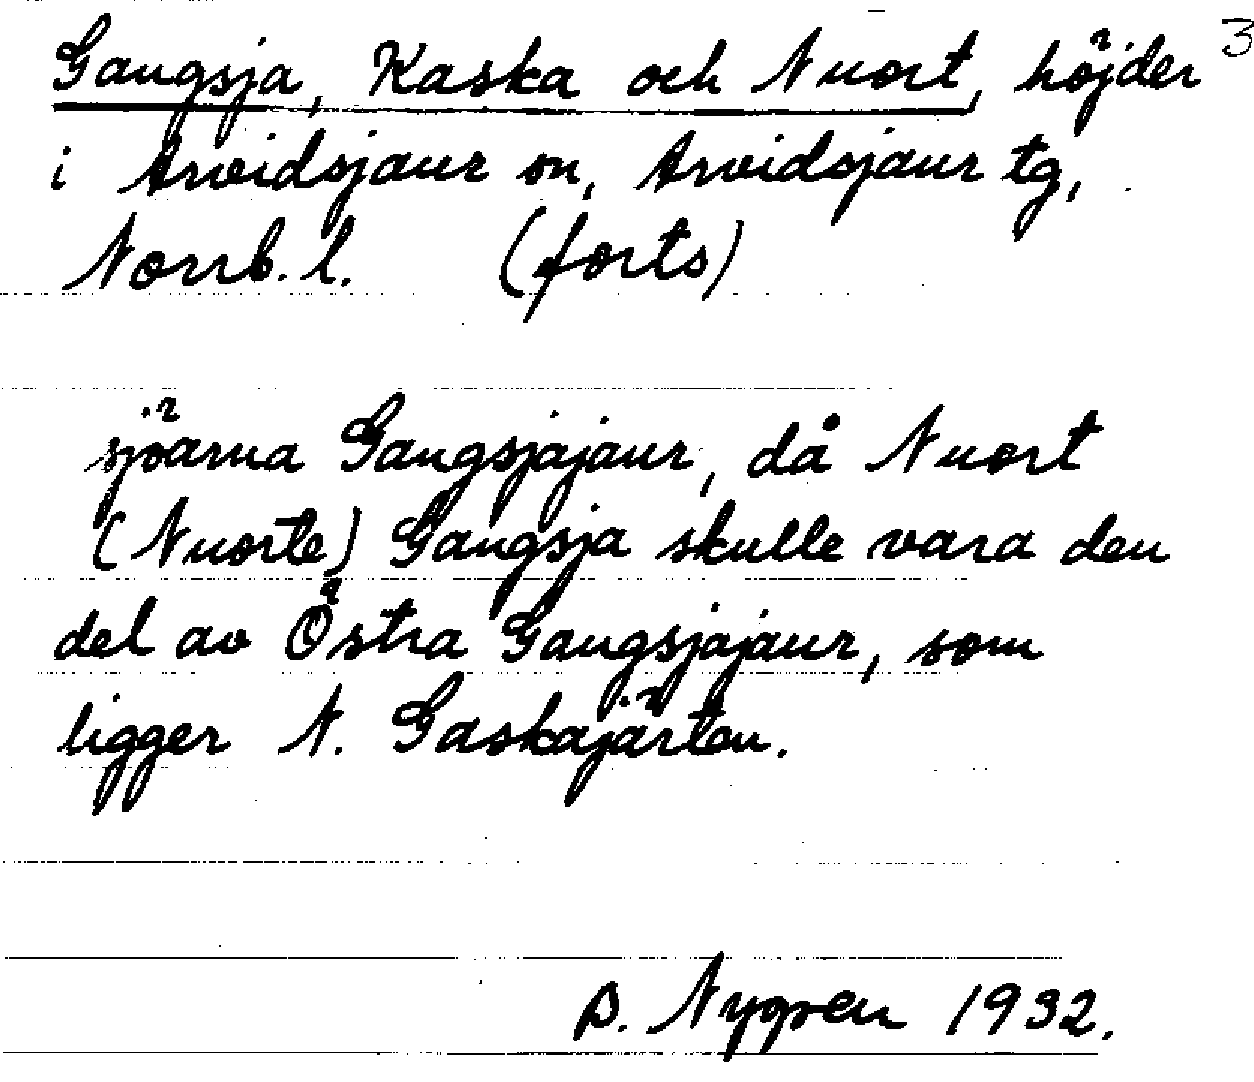 Gangsja, Kaska och Nuort, höjder 3
i Arvidsjaur sn, Arvidsjaur tg,
Norrb. l. (forts)
sjöarna Gangsjajaur, då Nuort
(Nuorte) Gangsja skulle vara den
del av Östra Gangsjajaur, som
ligger N. Gaskajärton.
D. Nygren 1932.